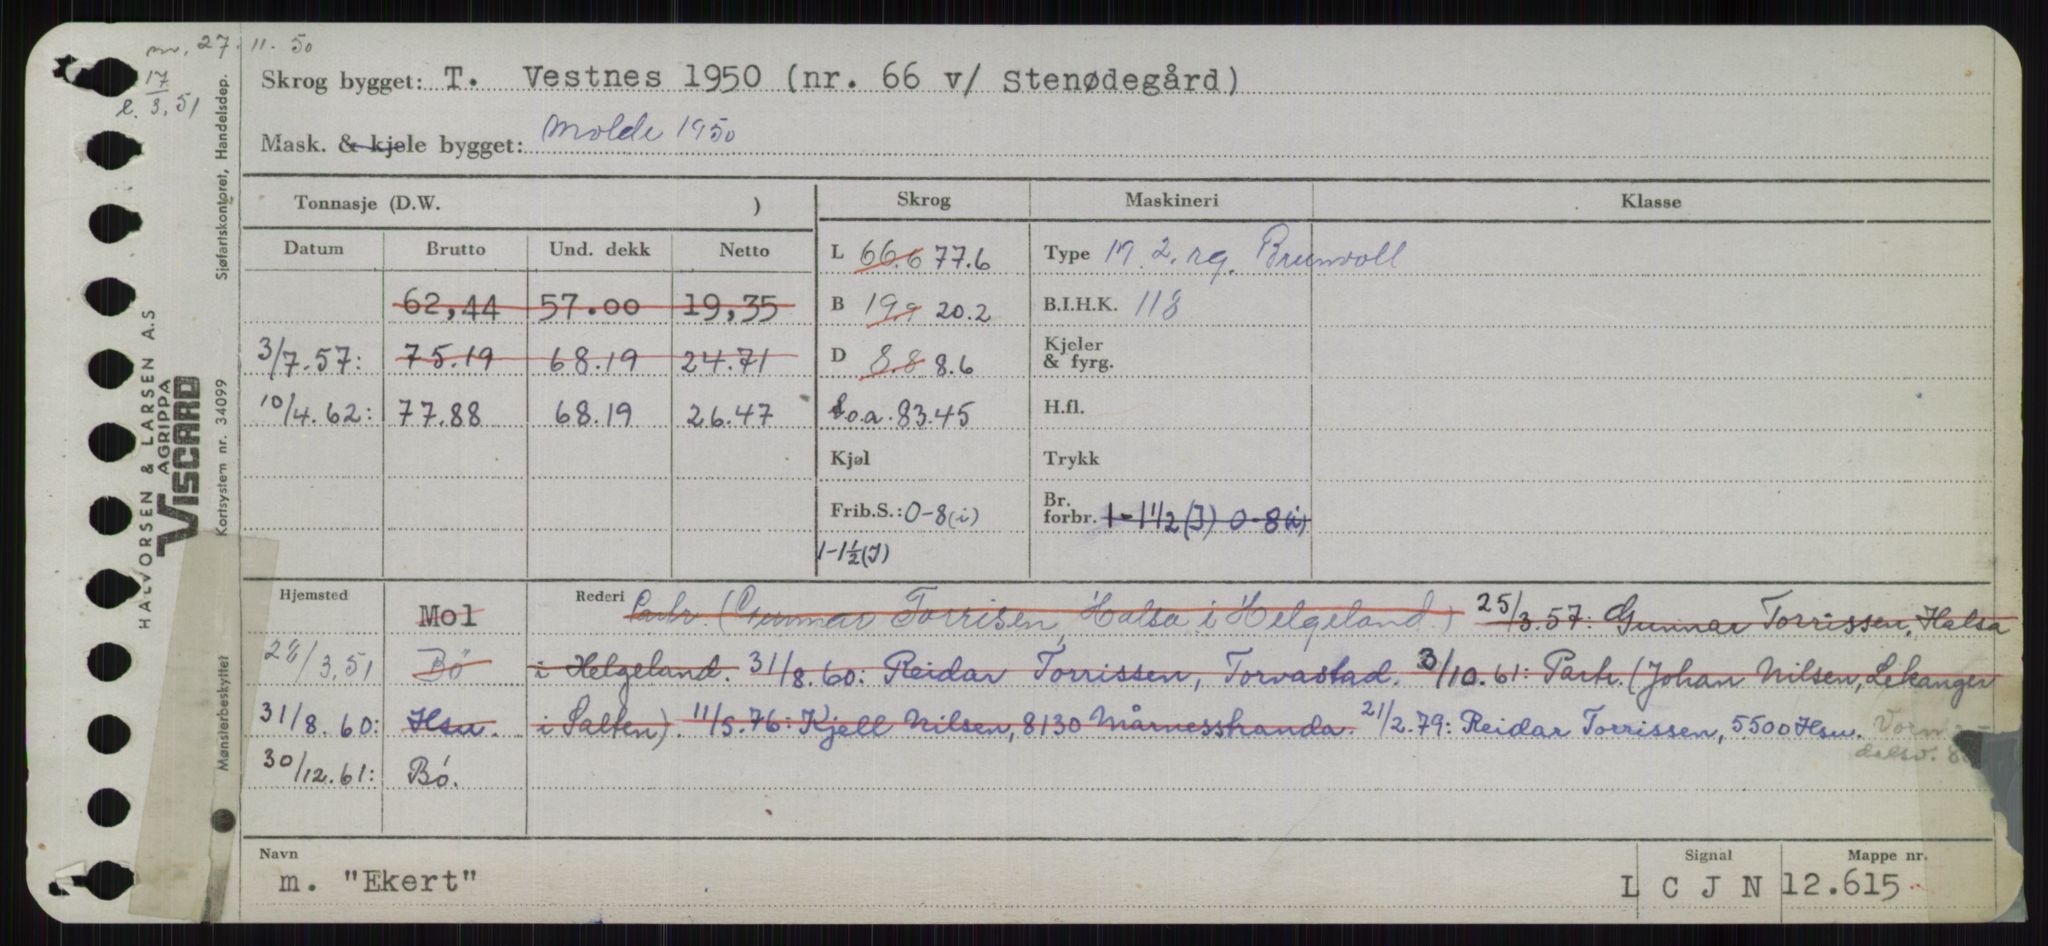 27.11.50
17/3.51
Skrog bygget: T. Vestnes 1950 (nr. 66 v/ Stenødegård)
Mask. & kjele bygget: Molde 1950
Tonnasje (D.W. ) Skrog Maskineri Klasse
Datum Brutto Und. dekk Netto
L 66.6 77.6 Type 2. Brunvoll
62,44 57.00 19,35 B 19.9 20.2 B.I.H.K. 118
3/7.57: 75.19 68.19 24.71 D 8.8 8.6 Kjeler & fyrg.
10/4.62: 77.88 68.19 26.47 L.o.a. 83.45 H.fl.
Kjøl Trykk
Frib.S.: 0-8(i) Br. forbr. 1-1 1/2 (J) 0-8(i)
1-1½(J)
Hjemsted Rederi
Mol Partr. (Gunnar Torrisen, Halsa i Helgeland.) 25/3.57: Gunnar Torrissen, Halsa
28/3.51 Bö i Helgeland. 31/8.60: Reidar Torrissen, Torvastad. 3/10.61: Partr. (Johan Nilsen, Lekanger
31/8.60: Hsu. i Salten). 11/5.76: Kjell Nilsen, 8130 Mårnesstranda. 21/2.79: Reidar Torrissen, 5500 Hsu.
30/12.61: Bö.
Navn Signal Mappe nr.
m. "Ekert" L C J N 12.615
Sjøfartskontoret, Handelsdep.
Kortsystem nr. 34099
Mønsterbeskyttet
HALVORSEN & LARSEN A.S
AGRIPPA
VISCARD